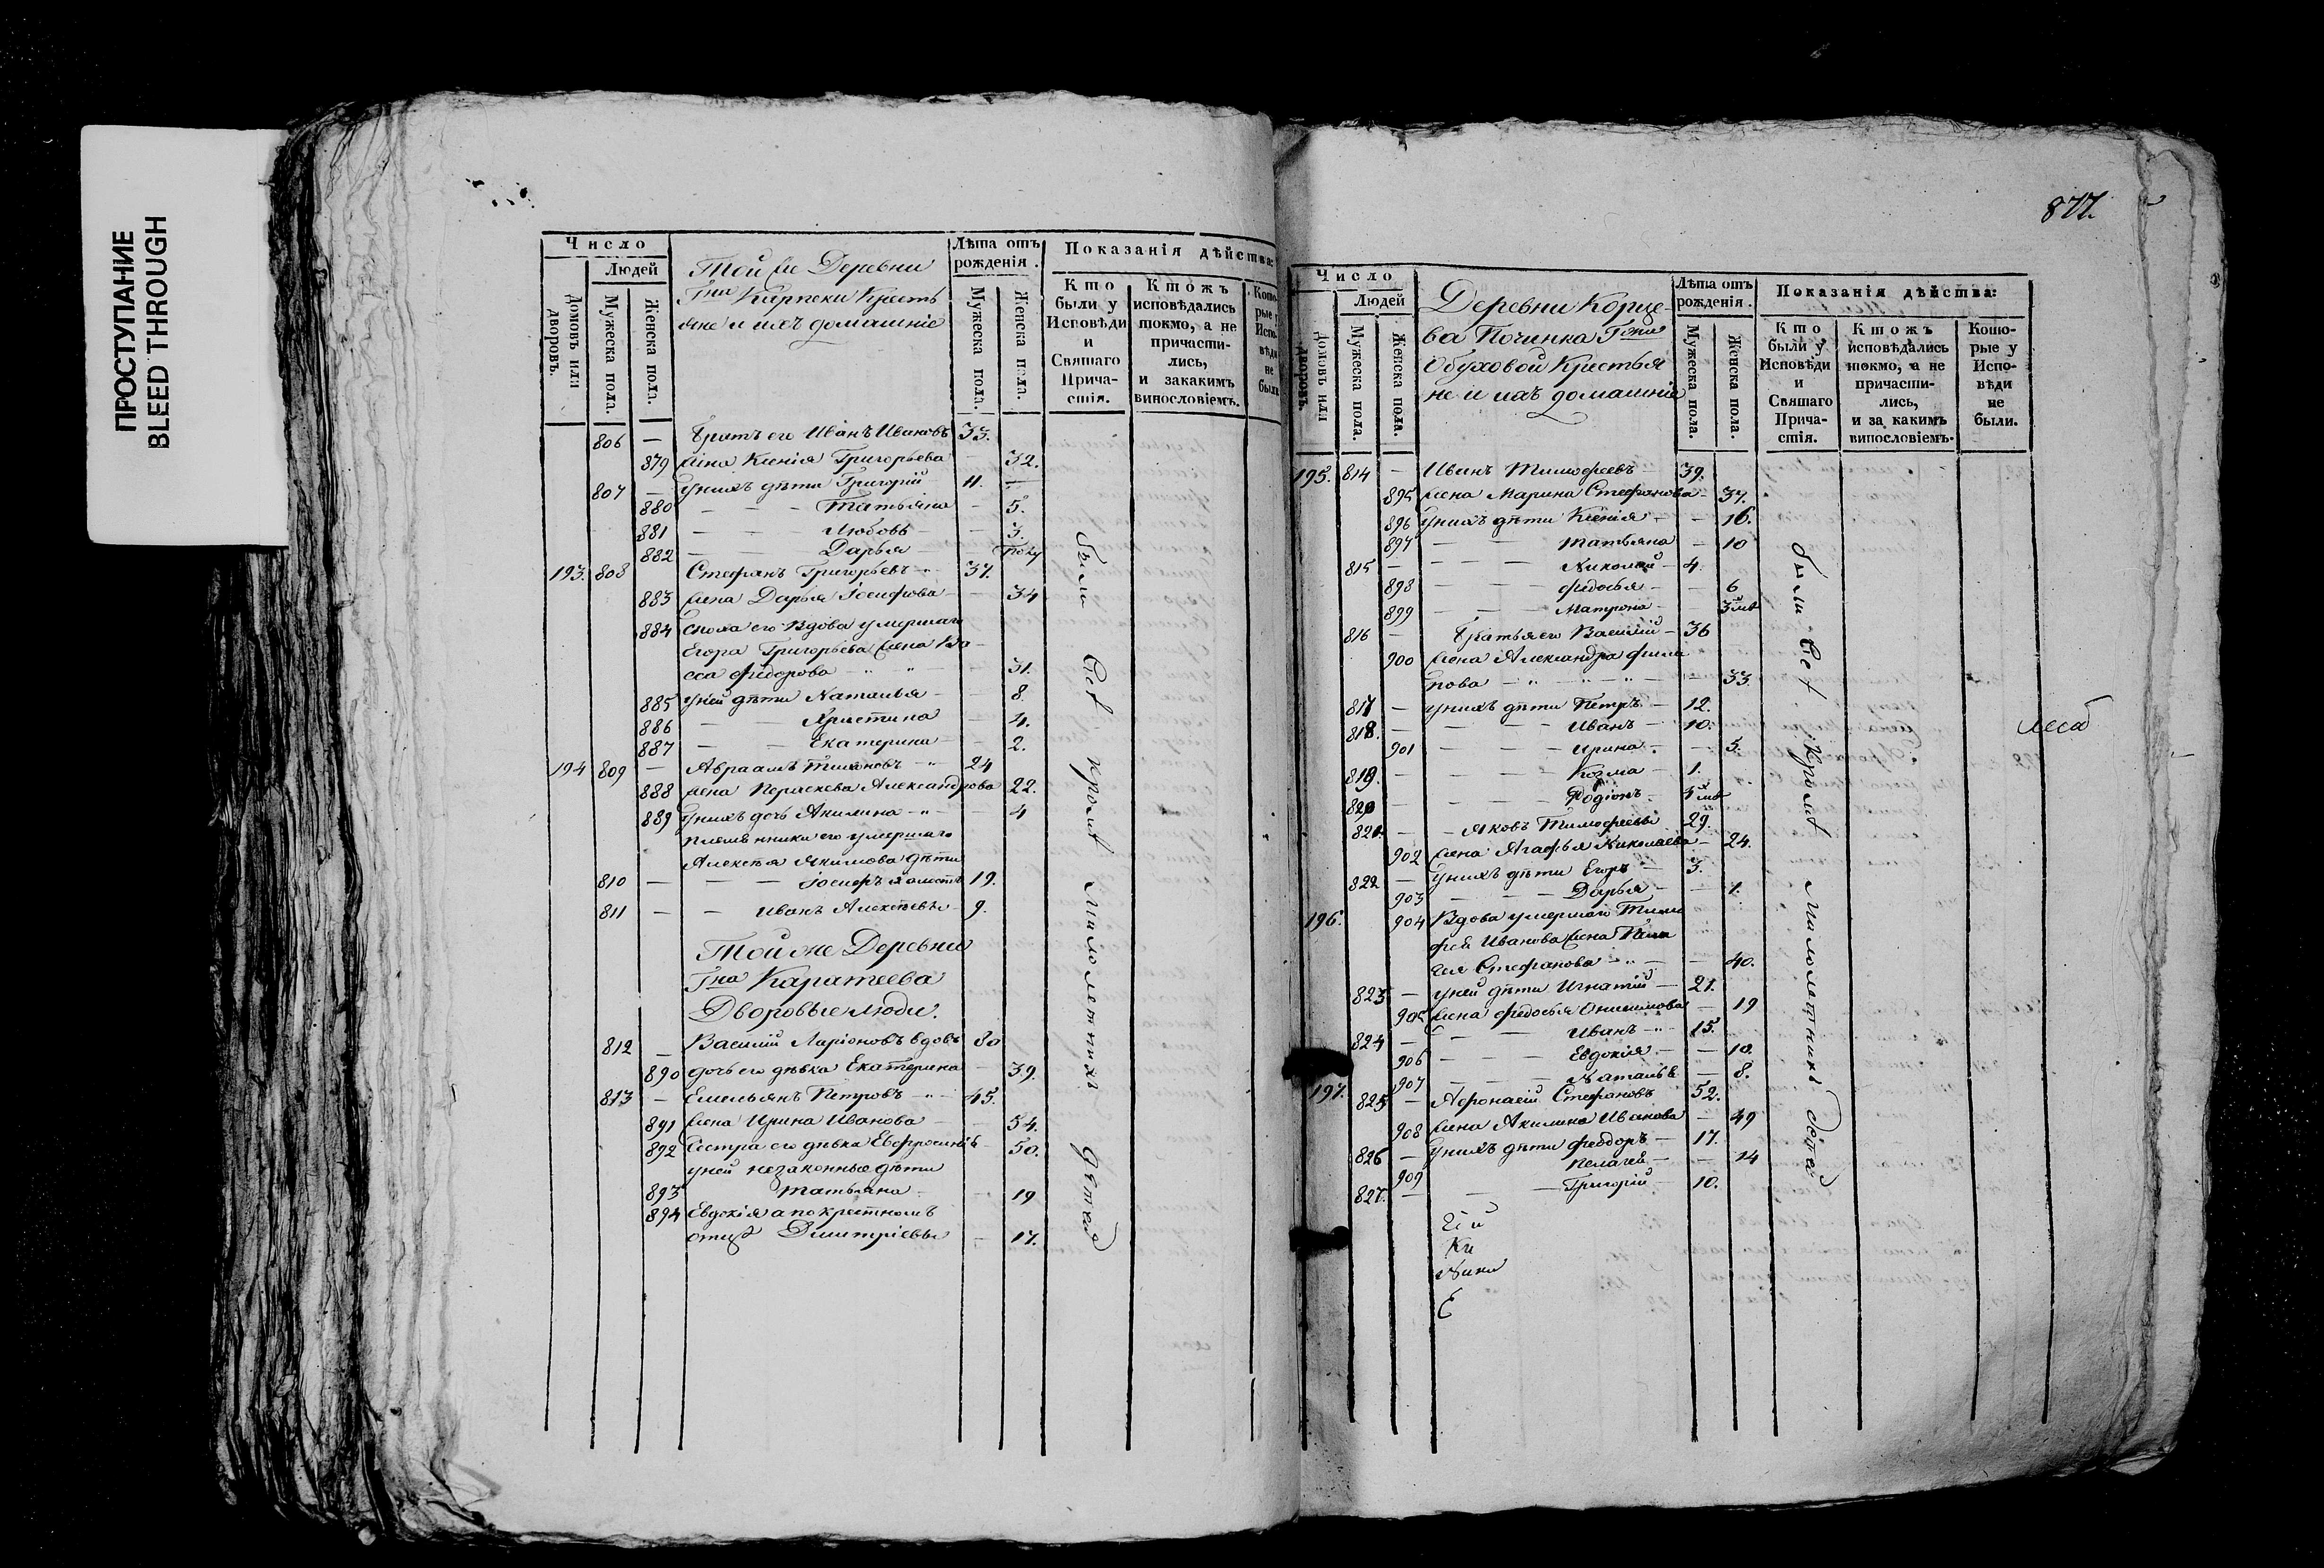 ПРОСТУПАНИЕ
BLEED THROUGH
877.
Число
Людей
Домовъ или дворовъ.
Мужеска пола.
Женска пола.
Той же Деревни
Гна Карпеки Крестья
яне и ихъ домашніе
Лѣта отъ рожденія.
Мужеска пола.
Женска пола.
Показанія дѣйства:
Кто были у Исповѣди и Святаго Прича-стія.
Ктожъ исповѣдались токмо, а не причасти-лись, и закакимъ винословіемъ.
806 — Братъ его Иванъ Ивановъ 33.
879 жена Ксенія Григорьева — 32.
807 — У нихъ дѣти Григорій 11. —
880 — — — Татьяна — 5.
881 — — Любовь — 3.
882 — Дарья
193. 808 Стефанъ Григорьевъ 37.
883 жена Дарья Іосифова — 34
884 сноха его вдова умершаго
Егора Григорьева жена Ва
сса Федорова — 31.
885 у ней дѣти Наталья — 8
886 — — Христина — 4.
887 — — Екатерина — 2.
194 809 — Авраамъ Тихоновъ 24
888 жена Параскева Александрова 22.
889 У нихъ дочь Акилина — 4
племянники его умершаго
Алексѣя Якимова дѣти
810 — — — Іосифъ холостъ 19.
811 — — Иванъ Алексѣевы 9.
Той же Деревни
Гна Каратеева
Дворовые люди.
812 — Василій Ларіоновъ вдовъ 80
890 дочь его дѣвка Екатерина — 39.
813 — Емельянъ Петровъ 45.
891 жена Ирина Иванова — 54.
892 Сестра его дѣвка Евфросинія — 50.
у ней незаконные дѣти
893 Татьяна — 19
894 Евдокія а по крестномъ
отцѣ Димитріевы — 17.
были всѣ кромѣ малолетнихъ дѣтей
Число
Людей
Домовъ или дворовъ.
Мужеска пола.
Женска пола.
Деревни Корце-
ва Починка Гжи
Обуховой Крестья
не и ихъ домашніе
Лѣта отъ рожденія.
Мужеска пола.
Женска пола.
Показанія дѣйства:
Кто были у Исповѣди и Святаго Прича-стія.
Ктожъ исповѣдались токмо, а не причасти-лись, и за какимъ винословіемъ.
Кото-рые у Испо-вѣди не были.
195. 814 — Иванъ Тимофеевъ — 39.
895 жена Марина Стефанова — 37.
896 У нихъ дѣти Ксенія — — 16.
897 — — Татьяна — 10
815 — — — — Николай — 4.
898 — — — Федосья — 6
899 — — — Матрона —
816 — Братья его Василій — 36
900 жена Александра Фили
пова — 33.
817 — У нихъ дѣти Петръ — 12.
818. — — — Иванъ — 10.
901 — — — Ирина — 5.
819. — — — — Козма — 1.
820 — — — — Родіонъ
821. — — Яковъ Тимофеевы 29.
902 жена Агафья Николаева — 24.
822 — У нихъ дѣти Егоръ — 3.
903 — — — Дарья — 1.
196. 904 Вдова умершаго Тимо
фея Иванова жена Пела
гея Стефанова — 40.
823 — у ней дѣти Игнатій — 21.
905 жена Федосья Онисимова — 19
824 — — — Иванъ 15.
906 — — — Евдокія — 10.
907 — — — Наталья — 8.
197. 825 — Афонасій Стефановъ 52.
908 жена Акилина Иванова — 49
826 — У нихъ дѣти Феодоръ — 17.
909 Пелагея — — 14
827. — — — Григорій — 10.
были всѣ кромѣ малолетнихъ дѣтей